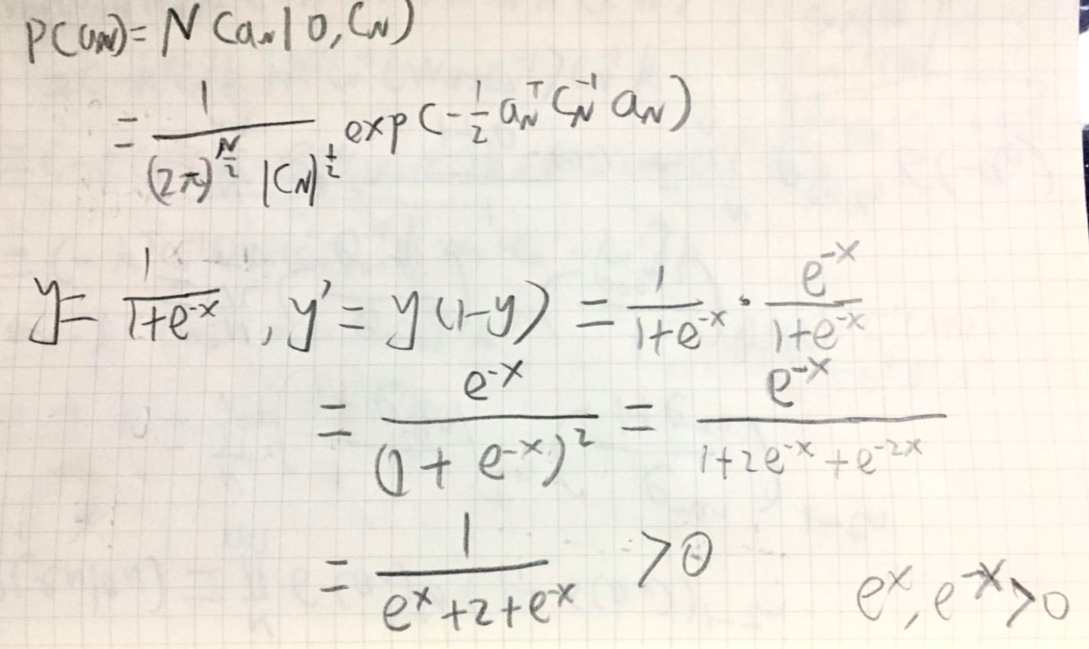 P(a_N) = N(a_N | 0, C_N)
= \frac{1}{(2π)^{\frac{N}{2}} |C_N|^{\frac{1}{2}}} exp(-\frac{1}{2} a_N^T C_N^{-1} a_N)
y = \frac{1}{1+e^{-x}}, y' = y(1-y) = \frac{1}{1+e^{-x}} · \frac{e^{-x}}{1+e^{-x}}
= \frac{e^{-x}}{(1+e^{-x})^2} = \frac{e^{-x}}{1+2e^{-x}+e^{-2x}}
= \frac{1}{e^x+2+e^{-x}} > 0 e^x, e^{-x} > 0